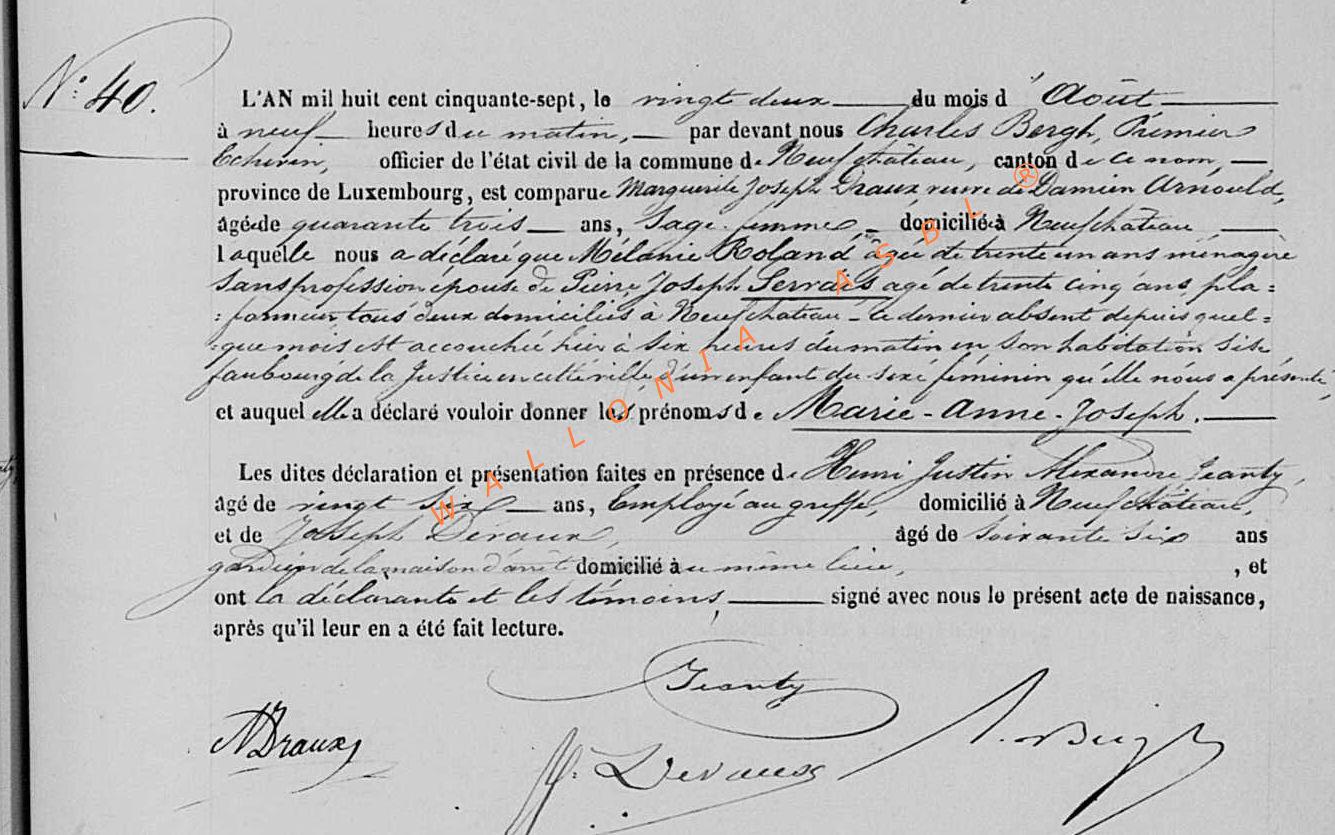 N° 40.
L'AN mil huit cent cinquante-sept, le vingt deux du mois d' Août
à neuf heures du matin, par devant nous Charles Bergh, Premier
Echevin, officier de l'état civil de la commune de Neufchâteau, canton de ce nom,
province de Luxembourg, est comparue Marguerite Joseph Draux veuve de Damien Arnould,
âgée de quarante trois ans, Sage-femme, domiciliée à Neufchâteau,
laquelle nous a déclaré que Mélanie Roland âgée de trente un ans ménagère
sans profession épouse de Pierre Joseph Servais agé de trente cinq ans, pla=
=fonneur, tous deux domiciliés à Neufchâteau - le dernier absent depuis quel=
=que mois est accouchée hier à six heures du matin en son habitation sise
faubourg de la Justice en cette ville d'un enfant du sexe féminin qu'elle nous a présenté,
et auquel elle a déclaré vouloir donner les prénoms de Marie-Anne-Joseph.
Les dites déclaration et présentation faites en présence de Henri Justin Alexandre Jeanty,
âgé de vingt six ans, Employé au greffe, domicilié à Neufchâteau,
et de Joseph Devaux, âgé de soixante six ans
gardien de la maison d'arrêt domicilié au même lieu, , et
ont la déclarante et les témoins, signé avec nous le présent acte de naissance,
après qu'il leur en a été fait lecture.
Jeanty
Draux
Devaux
Bergh
WALLONIA ASBL ®